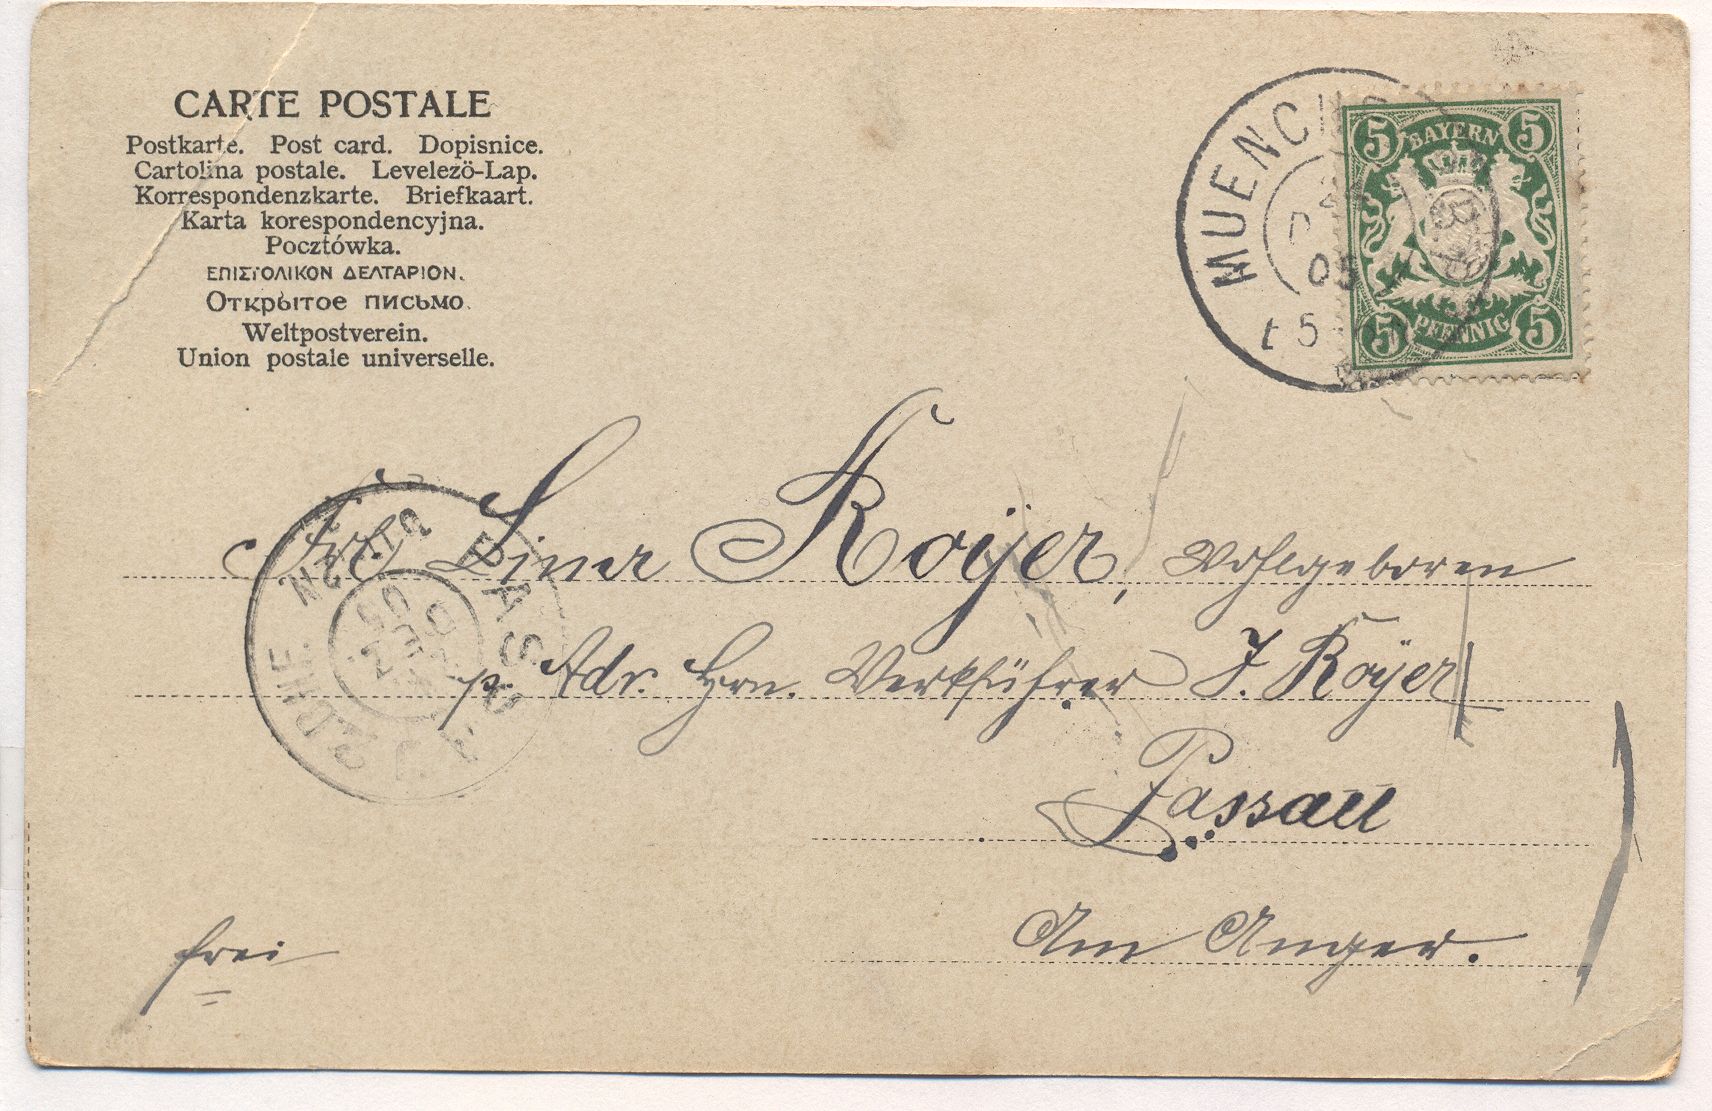 CARTE POSTALE
Postkarte. Post card. Dopisnice.
Cartolina postale. Levelezö-Lap.
Korrespondenzkarte. Briefkaart.
Karta korespondencyjna.
Pocztówka.
ΕΠΙΣΤΟΛΙΚΟΝ ΔΕΛΤΑΡΙΟΝ.
Открытое письмо.
Weltpostverein.
Union postale universelle.
MUENCH
05
5 BAYERN 5
5 PFENNIG 5
Frl. Lina Royer, Wohlgeboren
p. Adr. Hrn. Werkführer J. Royer
Passau
Am Anger.
frei
PASSAU
DEZ
05